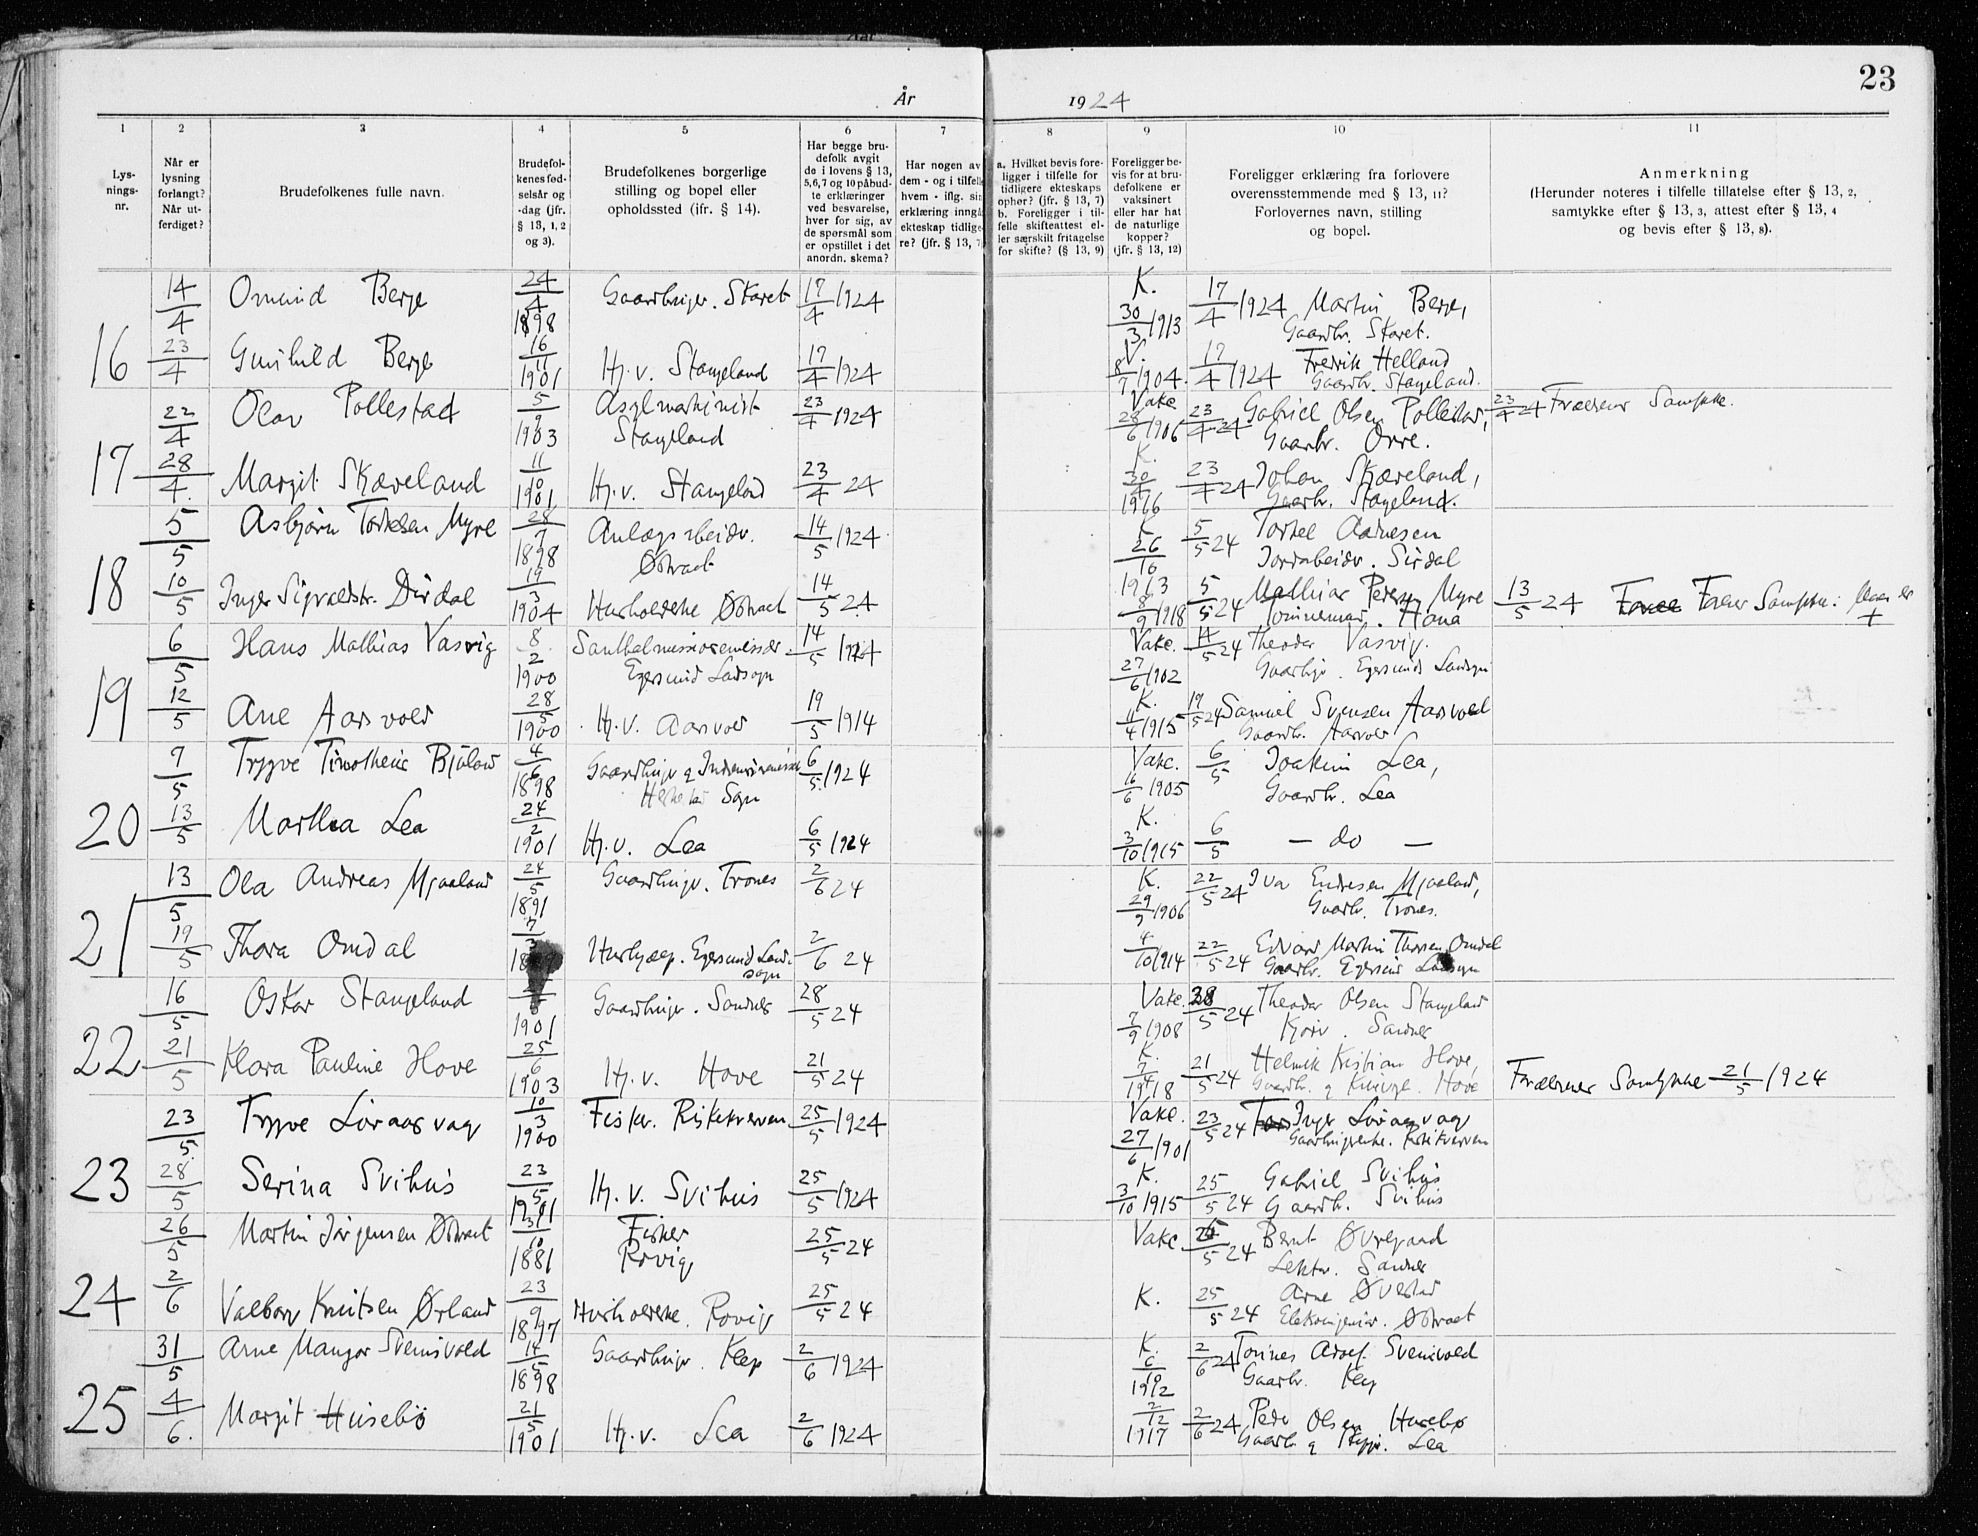 23
År 1924
1 2 3 4 5 6 7 8 9 10 11
Lys-
nings-
nr.
Når er
lysning
forlangt?
Når ut-
ferdiget?
Brudefolkenes fulle navn.
Brudefol-
kenes fød-
selsår og
-dag (jfr.
§ 13, 1, 2
og 3).
Brudefolkenes borgerlige
stilling og bopel eller
opholdssted (ifr. § 14).
Har begge bru-
defolk avgit
de i lovens § 13,
5,6,7 og 10 påbud-
te erklæringer
ved besvarelse,
hver for sig, av
de spørsmål som
er opstillet i det
anordn. skema?
Har nogen av
dem - og i tilfelle
hvem - iflg. sin
erklæring inngå
ekteskap tidlige-
re? (jfr. § 13, 7
a. Hvilket bevis fore-
ligger i tilfelle for
tidligere ekteskaps
ophør? (jfr. § 13, 7)
b. Foreligger i til-
felle skifteattest el-
ler særskilt fritagelse
for skifte? (§ 13, 9)
Foreligger be-
vis for at bru-
defolkene er
vaksinert
eller har hat
de naturlige
kopper?
(jfr. § 13, 12)
Foreligger erklæring fra forlovere
overensstemmende med § 13, 11?
Forlovernes navn, stilling
og bopel.
Anmerkning
(Herunder noteres i tilfelle tillatelse efter § 13, 2,
samtykke efter § 13, 3, attest efter § 13, 4
og bevis efter § 13, 8).
14/4 Omund Berge 24/4 1898 Gaardbruger. Skaret 17/4 1924 K. 30/3 1913 17/4 1924 Martin Berge,
Gaardbr. Skaret.
16 23/4 Gunhild Berge 16/11 1901 Hj. v. Stangeland 17/4 1924 V. 8/7 1904. 17/4 1924 Fredrik Helland
Gaardbr. Stangeland.
22/4 Olav Pollestad 5/9 1903 Stangeland 23/4 1924 Vakc. 28/6 1906 23/4 24 Gabriel Olsen Pollestad,
Gaardbr. Orre. 23/4 24
17 28/4. Margit Skæveland 11/10 1901 Hj. v. Stangeland 23/4 24 K. 30/4 1916 23/4 24 Johan Skæveland,
Gaardbr. Stangeland.
5/5 Asbjørn Torkelsen Myre 28/7 1898 Anlægsarbeider.
Østraat 14/5 1924 K 26/10 1913 5/5 24 Torkel Aadnesen
Jordarbeider. Sirdal
18 10/5 Inger Sigvaldstr. Dirdal 19/3 1904 Husholderske Østraat 14/5 24 8/9 1918 5/5 24 Mathias Pedersen Myre
Tømmermand. Hana 13/5 24
6/5 Hans Mathias Vasvig 8/2 1900 Santhalmissionsemissær.
Egersund Landsogn 14/5 1924 Vakc. 27/6 1902 14/5 24 Theodor Vasvig.
Gaardbr. Egersund Landsogn
19 12/5 Ane Aarsvold 28/5 1900 Hj. v. Aarsvold 19/5 1914 K. 11/4 1915 19/5 24 Samuel Svensen Aarsvold
Gaardbr. Aarsvold
9/5 Trygve Timotheus Bjåland 4/6 1898 Heskestad Sogn 6/5 1924 Vakc. 16/6 1905 6/5 Joakim Lea,
Gaardbr. Lea
20 13/5 Marthea Lea 24/2 1901 Hj. v. Lea 6/5 1924 K. 3/10 1915 6/5 — do —
13/5 Ola Andreas Mjaaland 24/5 1891 Gaardbruger. Trones 2/6 24 K. 29/9 1906 22/5 24 Iva Endresen Mjaaland,
Gaardbr. Trones.
21 19/5 Thora Omdal Egersund Land-
sogn 2/6 24 4/10 1914 22/5 24 Edvard Martin Thorsen Omdal
Gaardbr. Egersund Landsogn
16/5 Oskar Stangeland 1901 Gaardbruger. Sandnes 28/5 24 Vakc. 7/9 1908 28/5 24 Theodor Olsen Stangeland
Sandnes
22 21/5 Klara Pauline Hove 25/6 1903 Hj. v. Hove 21/5 24 K. 1918 21/5 24 Helmik Kristian Hove,
Gaardbr. Hove Forældrenes Samtykke 21/5 1924
23/5. Trygve Løvaasvag 10/3 1900 Fisker. Rekekverven 25/5 1924 Vakc. 27/6 1901 23/5 24 Inger Løvaasvag
23 28/5 Serina Svihus 23/5 1901 Hj. v. Svihus 25/5 1924 K. 3/10 1915 25/5 24 Gabriel Svihus
Gaardbr. Svihus
26/5 Martin Jørgensen Østraat 1881 Fisker
Rovig 25/5 24 Vakc 5 24 Bernt Øvregaard
Lektor. Sandnes
24 2/6 Valborg Knutsen Ørland 23/9 1897 Husholderske. Rovig 25/5 24 K. 25/5 24 Arne Ølestad
Elektroingeniør. Østraat
31/5 Arne Mangor Svenisvold 14/5 1898 Gaardbruger. Klep 2/6 1924 K. 6/10 1912 2/6 24 Tønnes Adolf Svenisvold
Gaardbr. Klep
25 4/6. Margit Husebø 21/5 1901 Hj. v. Lea 2/6 1924 2/12 1917 2/6 24 Peder Olsen Husebø
Gaardbr. Lea